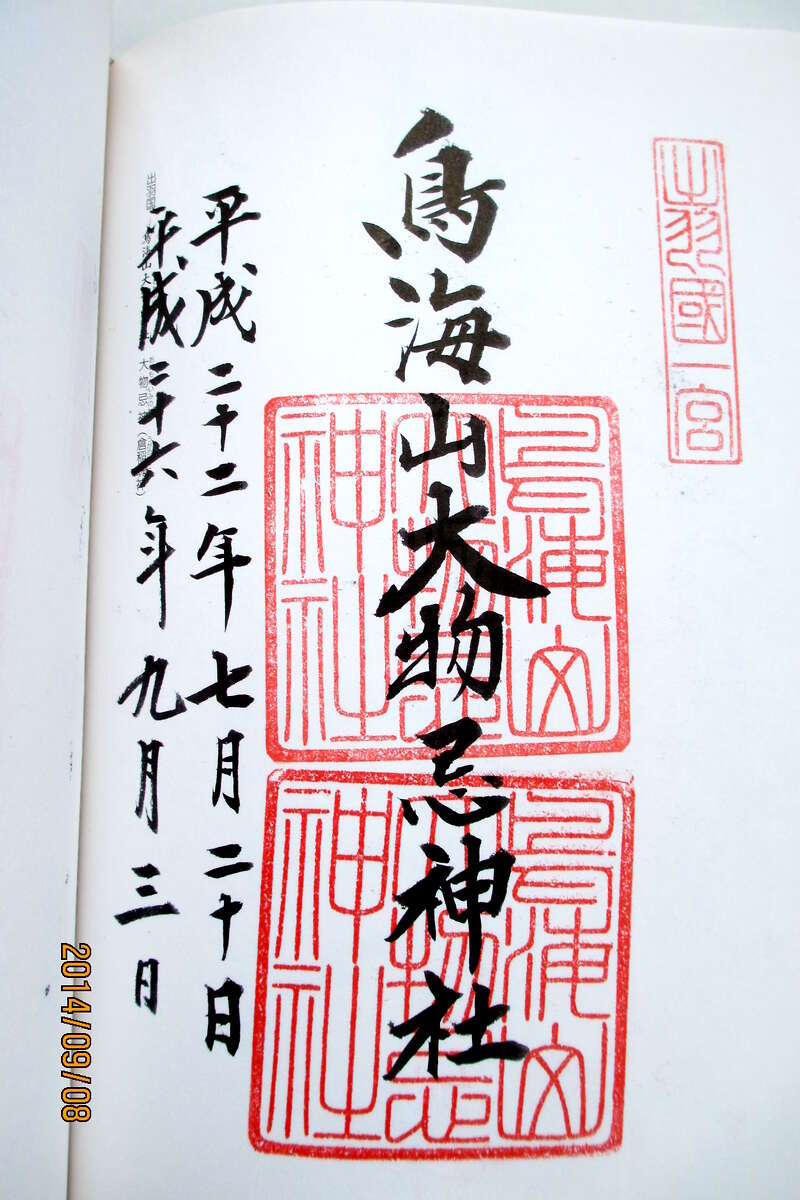 出羽國一宮
鳥海山大物忌神社
鳥海山
大物忌
神社
鳥海山
大物忌
神社
平成二十二年七月二十日
平成二十六年九月三日
2014/09/08